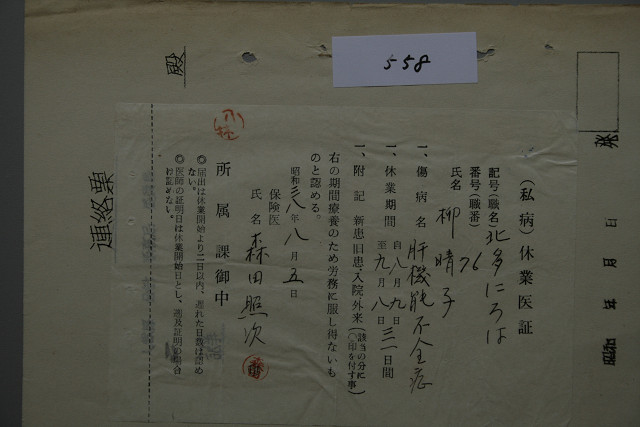 558
殿
連絡票
年 月 日
（私病）休業医証
記号（職名）北多にろは
番号（職番）76
氏名 柳晴子
一、傷病名 肝機能不全症
一、休業期間 自八月九日 至九月八日 三一日間
一、附記 新患旧患・入院外来（該当の分に〇印を付す事）
右の期間療養のため労務に服し得ないも
のと認める。
昭和三八年八月五日
保険医
氏名 森田照次
所属課御中
◎届出は休業開始より二日以内、遅れた日数は認め
ない。
◎医師の証明日は休業開始日とし、遡及証明の場合
は認めない。